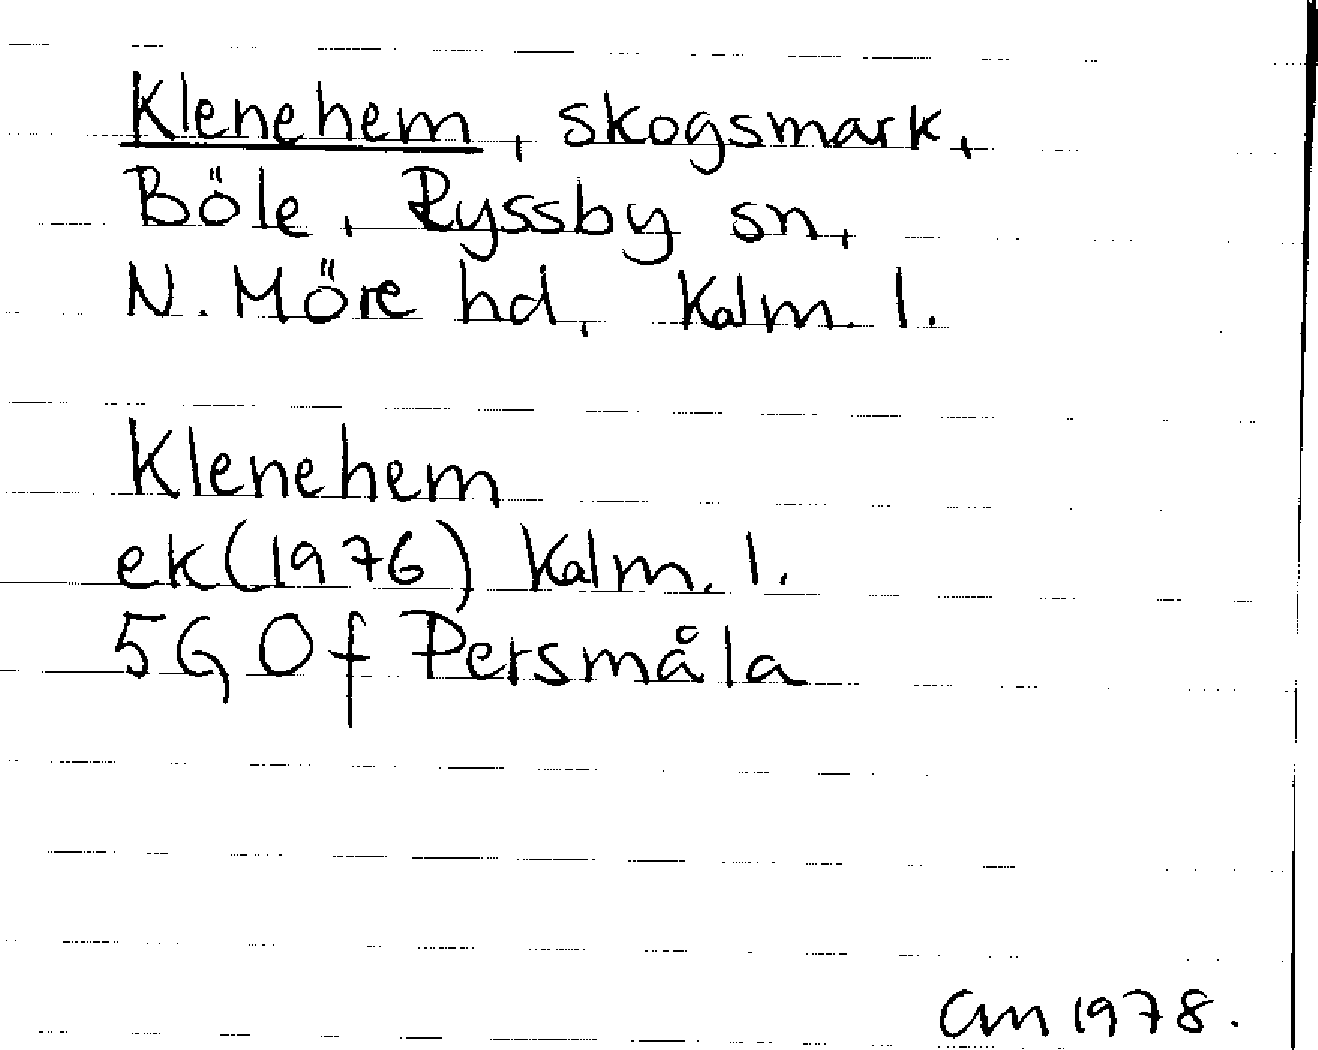 Klenehem, skogsmark,
Böle, Ryssby sn,
N. Möre hd, Kalm. l.
Klenehem
ek (1976) Kalm. l.
5G 0f Persmåla
CM 1978.